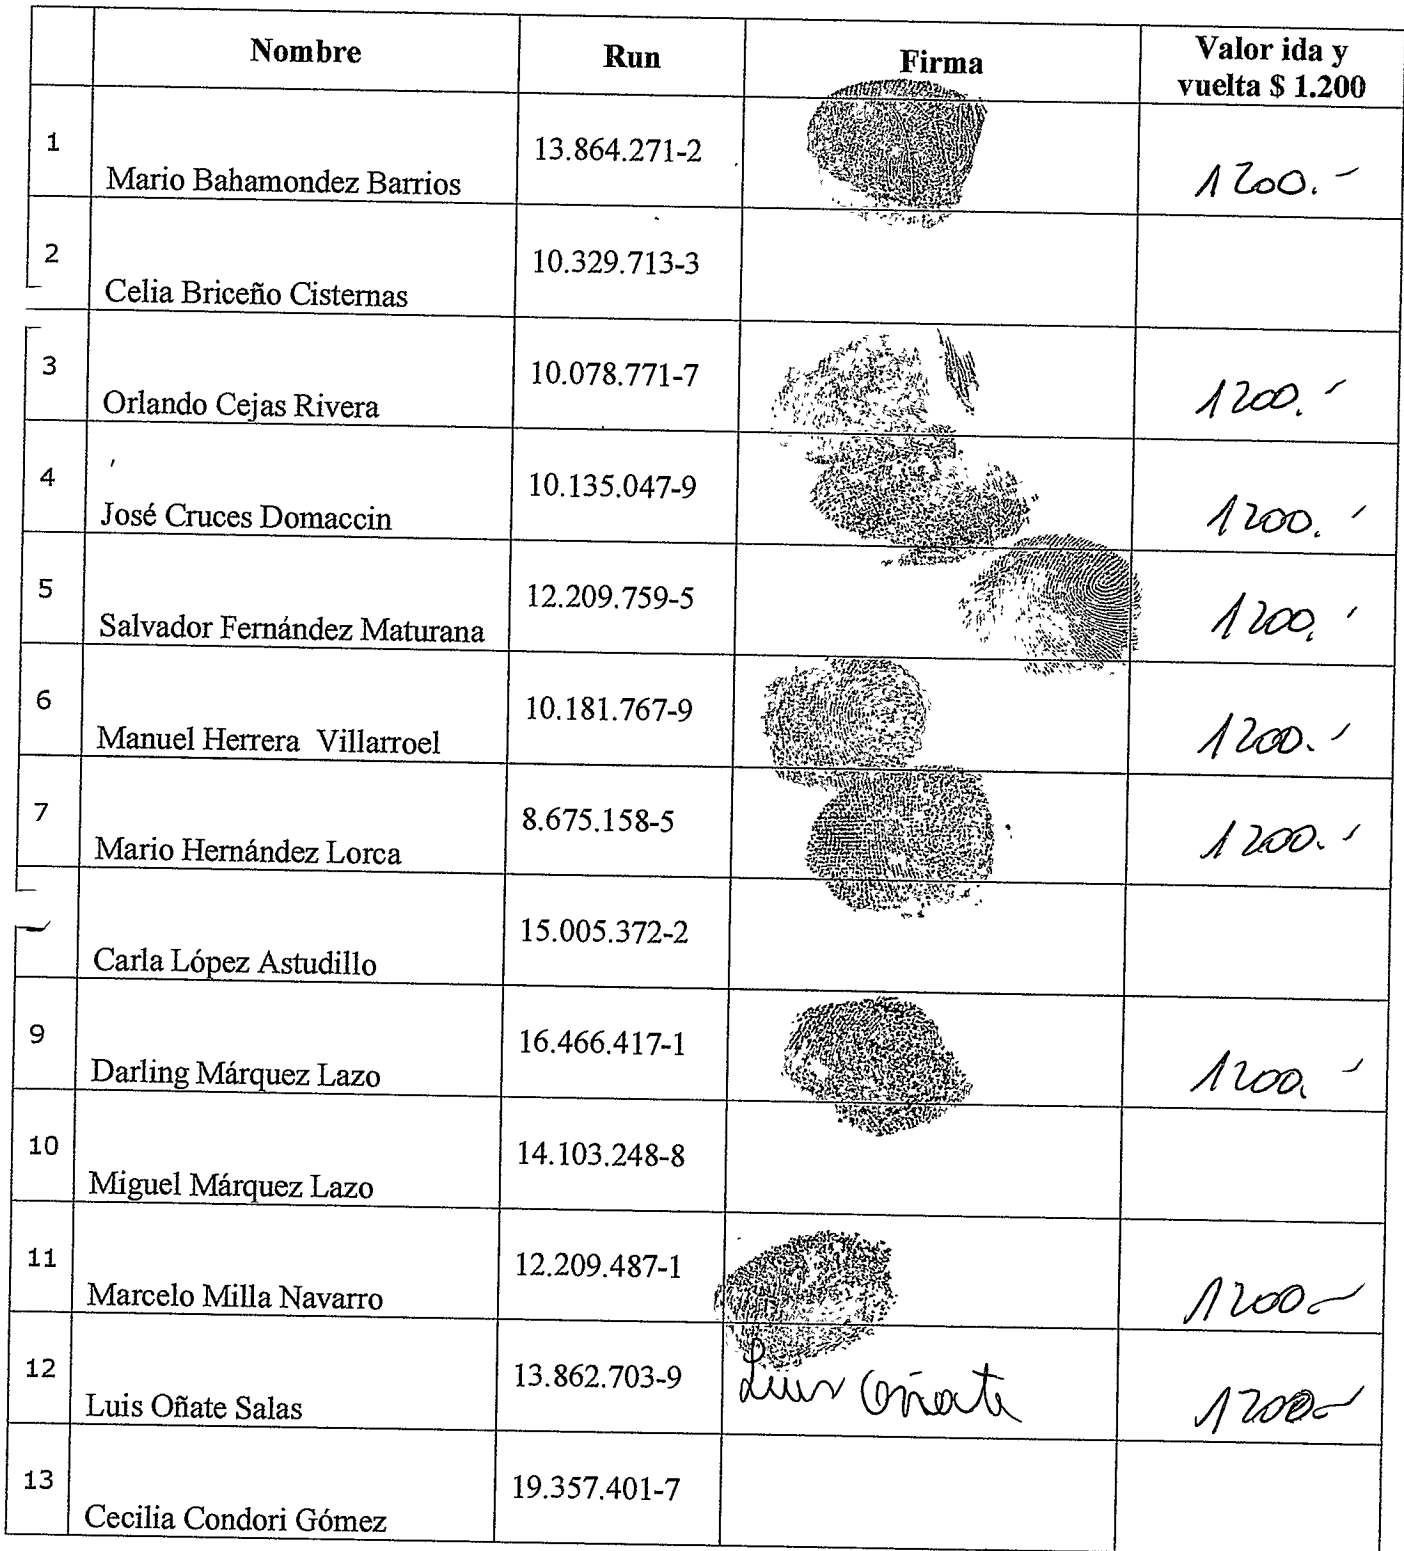 Nombre Run Firma Valor ida y
vuelta $ 1.200
1 Mario Bahamondez Barrios 13.864.271-2 1200.-
2 Celia Briceño Cisternas 10.329.713-3
3 Orlando Cejas Rivera 10.078.771-7 1200.-
4 José Cruces Domaccin 10.135.047-9 1200.-
5 Salvador Fernández Maturana 12.209.759-5 1200.-
6 Manuel Herrera Villarroel 10.181.767-9 1200.-
7 Mario Hernández Lorca 8.675.158-5 1200.-
Carla López Astudillo 15.005.372-2
9 Darling Márquez Lazo 16.466.417-1 1200.-
10 Miguel Márquez Lazo 14.103.248-8
11 Marcelo Milla Navarro 12.209.487-1 1200-
12 Luis Oñate Salas 13.862.703-9 Luis Oñate 1200-
13 Cecilia Condori Gómez 19.357.401-7